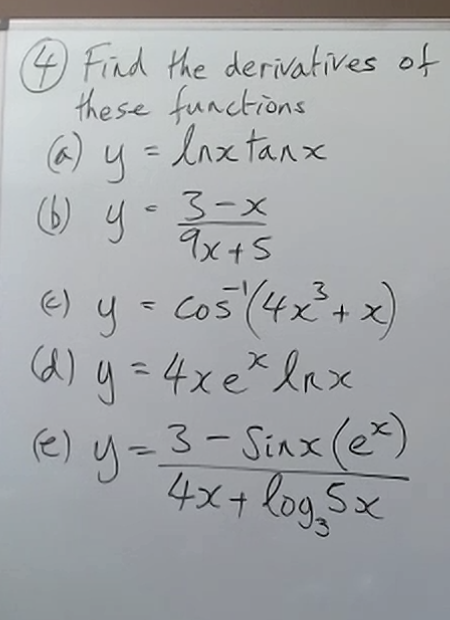 ④ Find the derivatives of
these functions
(a) y = lnx tanx
(b) y = (3-x)/(9x+5)
(c) y = cos⁻¹(4x³+x)
(d) y = 4xeˣ lnx
(e) y = (3 - Sinx(eˣ))/(4x + log₃5x)